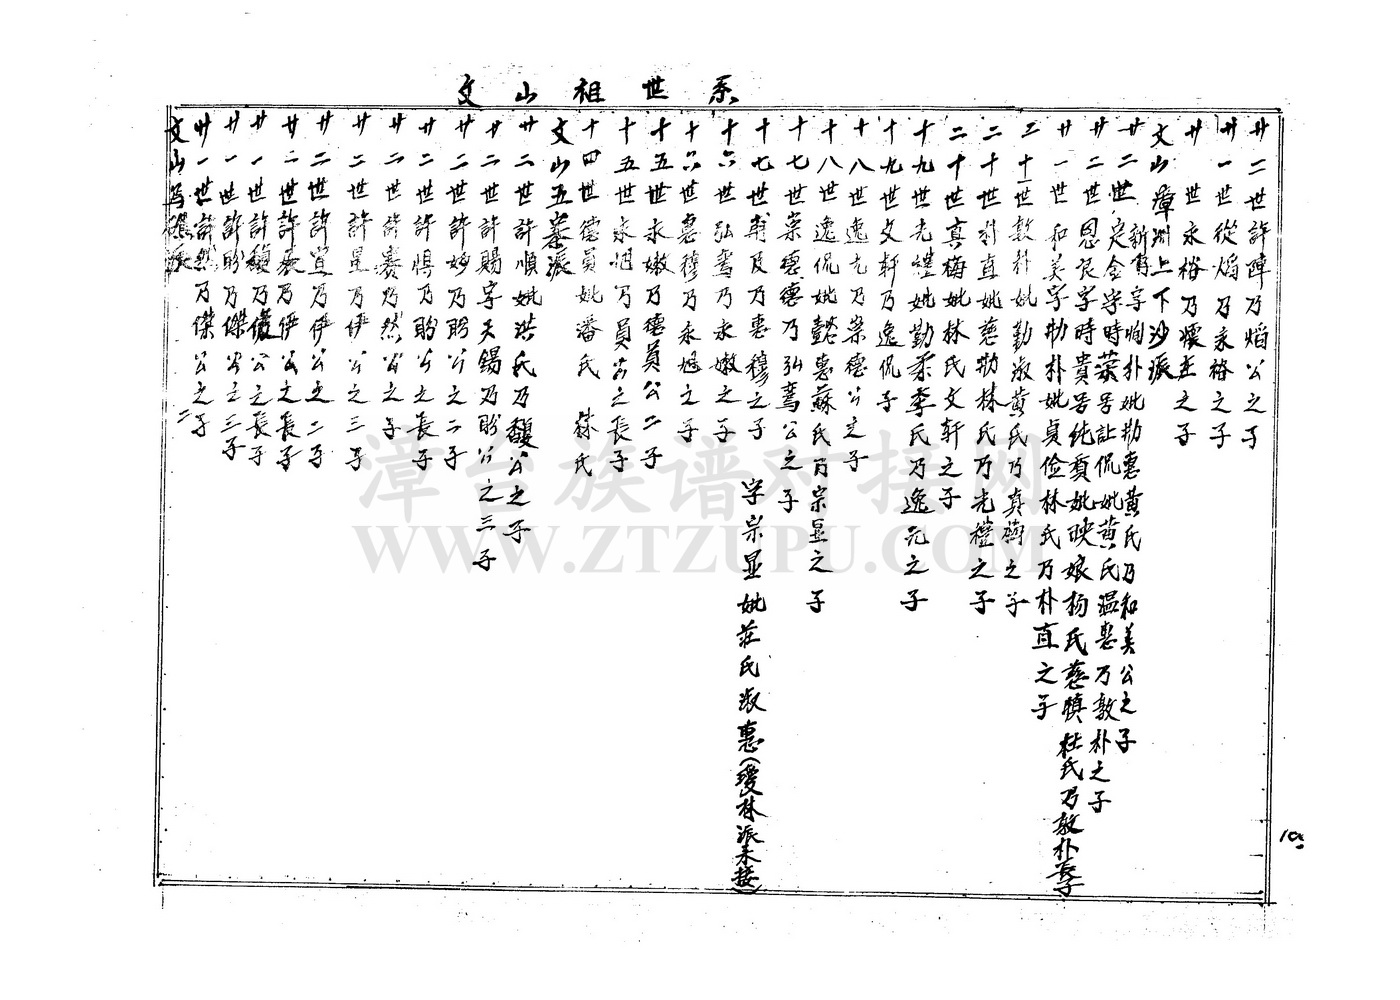 文山祖世系
廿二世許障乃焰公之子
廿一世從焰乃永裕之子
廿世永裕乃懷主之子
文山漳州上下沙派
廿二世新有字炯朴妣勤惠黃氏乃和美公之子
廿二世定金字時榮号註侃妣黃氏温惠乃敦朴之子
廿二世恩良字時貴号純質妣映娘杨氏慈慎杜氏乃敦朴長子
廿一世和美字勤朴妣貞儉林氏乃朴直之子
三十世敦朴妣勤淑黄氏乃真梅之子
二十世朴直妣慈勤林氏乃光禮之子
二十世真梅妣林氏文轩之子
十九世光禮妣勤柔李氏乃逸元之子
十九世文軒乃逸侃子
十八世逸元乃崇德公之子
十八世逸侃妣懿惠蘇氏乃宗显之子
十七世崇德德乃弘鸾公之子
十七世甫及乃惠穆之子 字宗显妣莊氏淑惠(瓊林派未接)
十六世弘鸾乃永嫩之子
十六世惠穆乃永旭之子
十五世永嫩乃德員公二子
十五世永旭乃員公之長子
十四世德員妣潘氏 蔡氏
文山五寨派
廿二世許順妣洪氏乃馥公之子
廿二世許賜字天錫乃盼公之三子
廿二世許妙乃盼公之二子
廿二世許惕乃盼公之長子
廿二世許賽乃然公之子
廿二世許星乃伊公之三子
廿二世許宣乃伊公之二子
廿二世許最乃伊公之長子
廿一世許馥乃儀公之長子
廿一世許盼乃傑公之三子
廿一世許然乃傑公之二子
文山寫礁派
漳台族谱对接网
WWW.ZTZUPU.COM